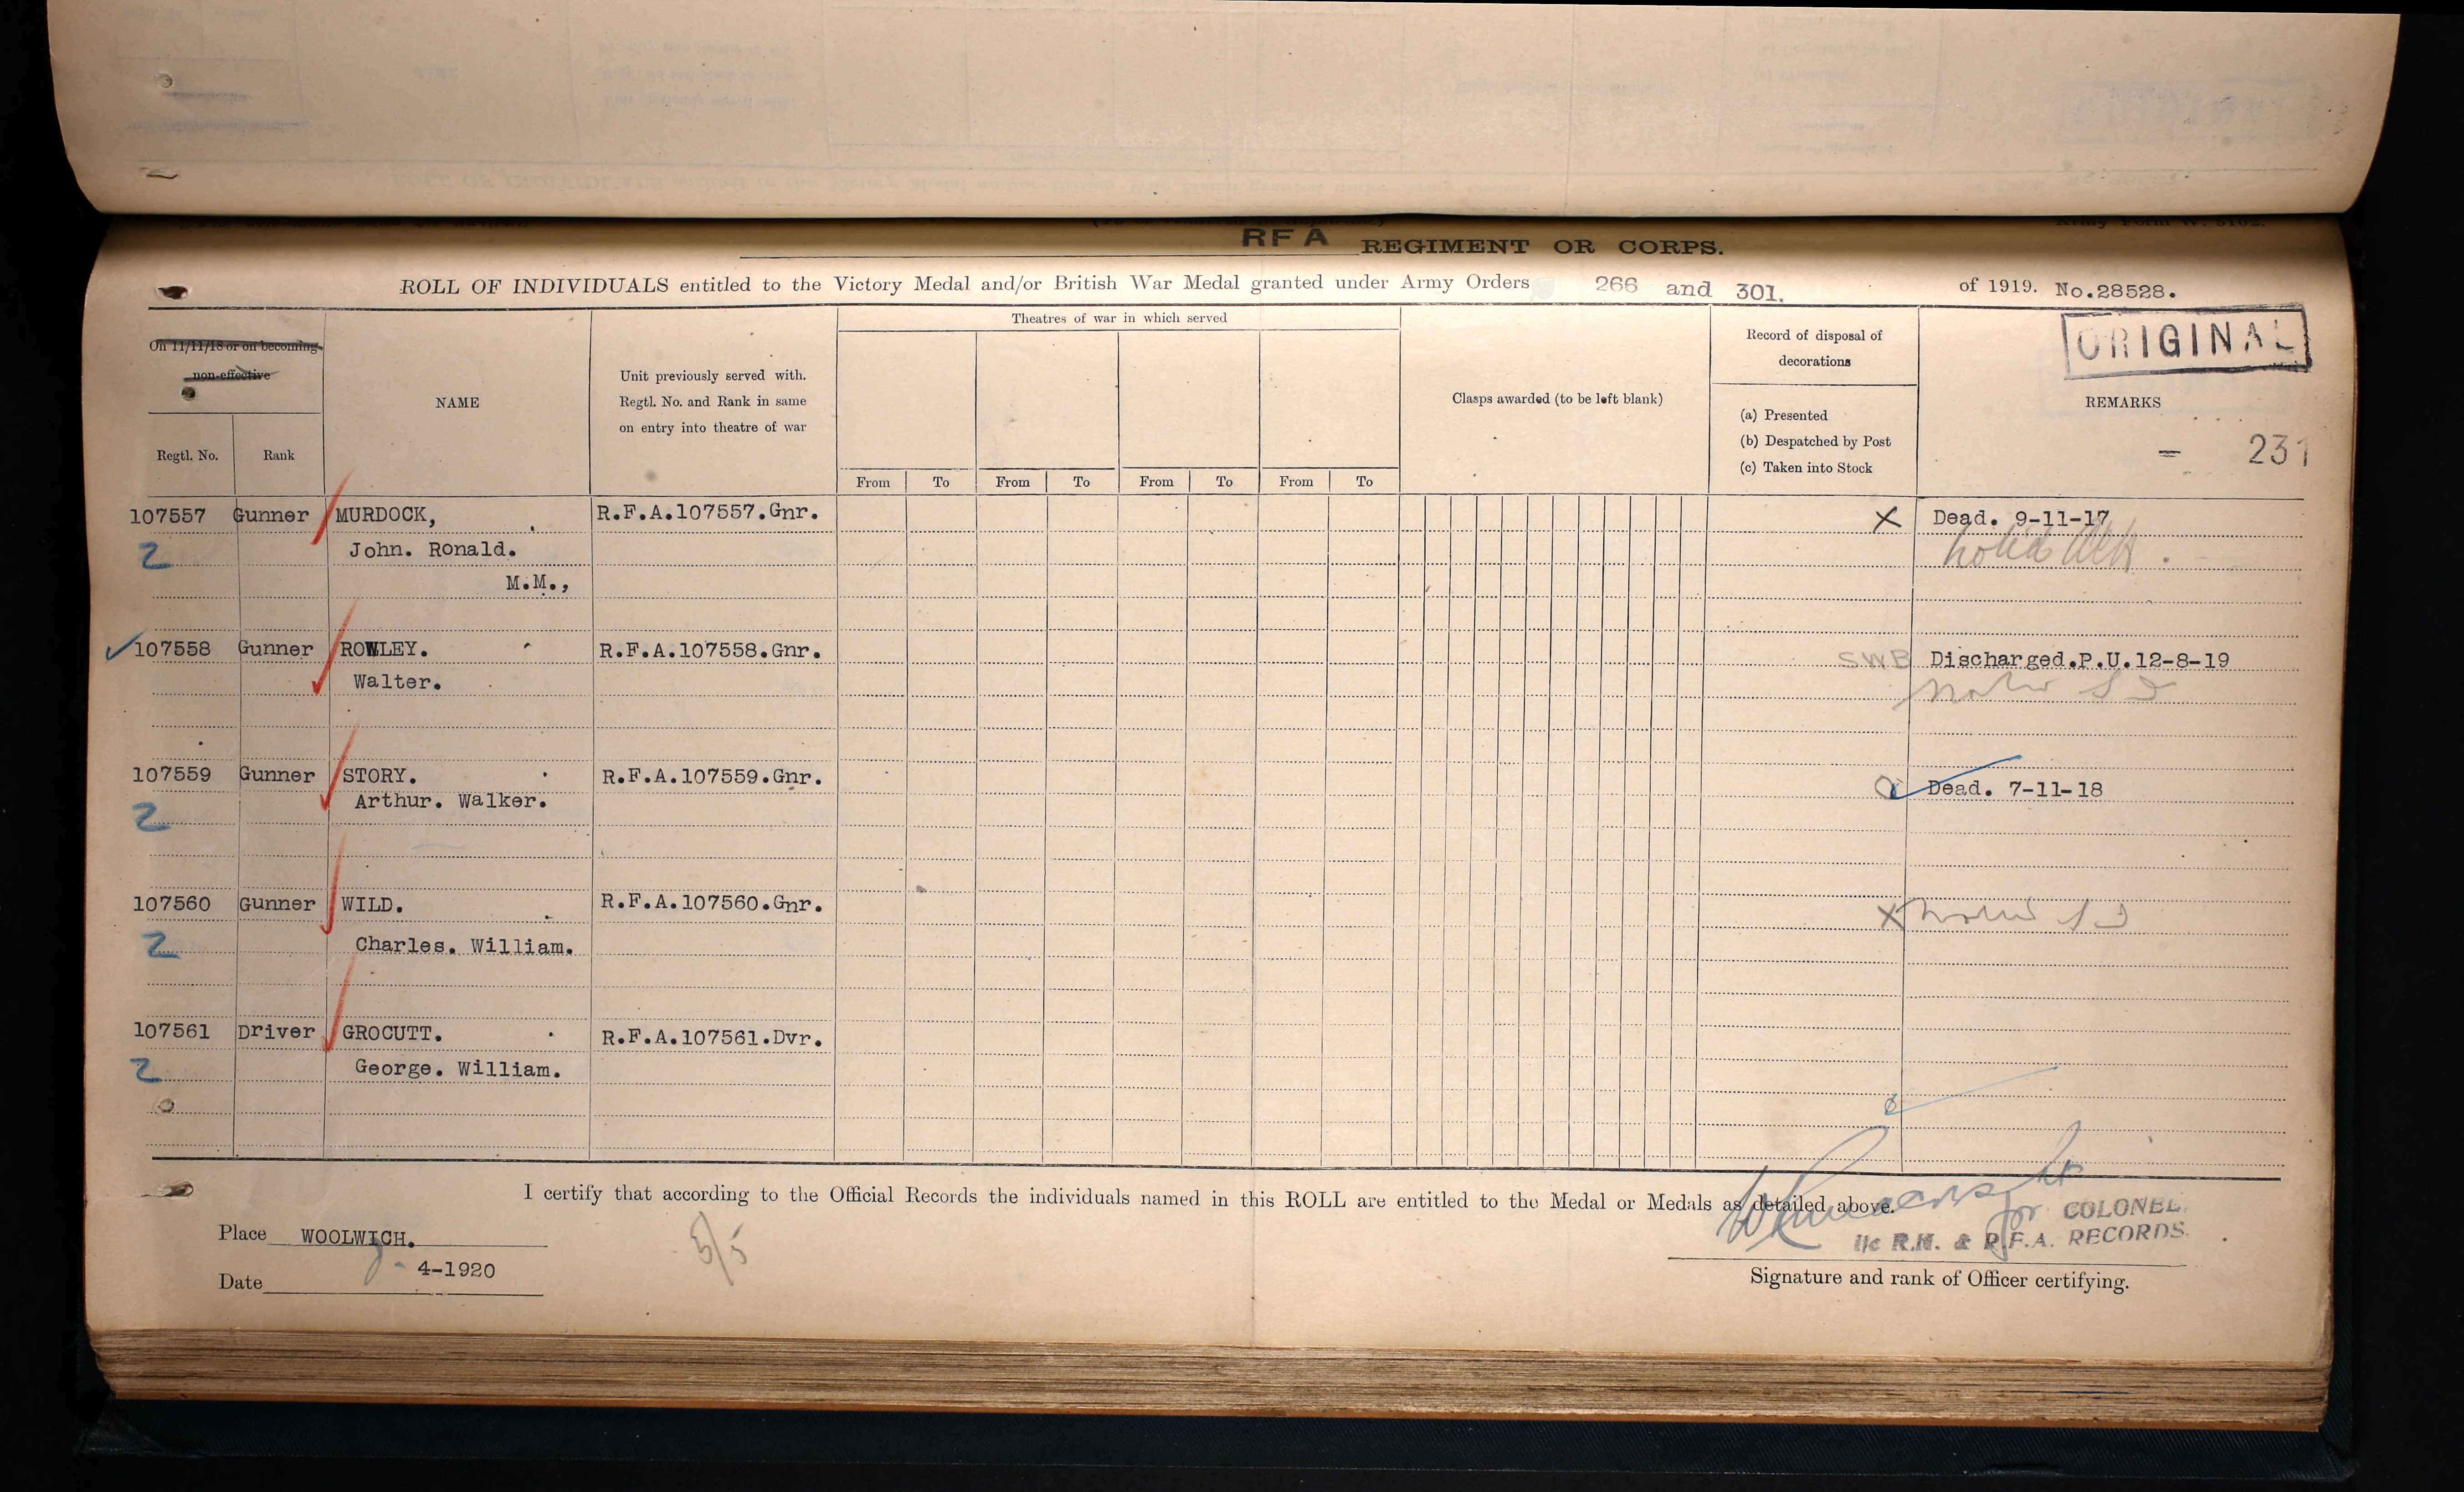 RFA REGIMENT OR CORPS.
ROLL OF INDIVIDUALS entitled to the Victory Medal and/or British War Medal granted under Army Orders 266 and 301. of 1919. No.28528.
ORIGINAL
On 11/11/18 or on becoming
non-effective
Regtl. No.
Rank
NAME
Unit previously served with.
Regtl. No. and Rank in same
on entry into theatre of war
Theatres of war in which served
From To From To From To From To
Clasps awarded (to be left blank)
Record of disposal of
decorations
(a) Presented
(b) Despatched by Post
(c) Taken into Stock
REMARKS
231
107557 Gunner MURDOCK, R.F.A.107557.Gnr. X Dead. 9-11-17
2 John. Ronald.
M.M.,
107558 Gunner ROWLEY. R.F.A.107558.Gnr. SWB Discharged.P.U.12-8-19
Walter.
107559 Gunner STORY. R.F.A.107559.Gnr. Dead. 7-11-18
2 Arthur. Walker.
107560 Gunner WILD. R.F.A.107560.Gnr. X
2 Charles. William.
107561 Driver GROCUTT. R.F.A.107561.Dvr.
2 George. William.
I certify that according to the Official Records the individuals named in this ROLL are entitled to the Medal or Medals as detailed above.
for COLONEL
i/c R.H. & R.F.A. RECORDS
Place WOOLWICH.
5/5
Date 4-1920
Signature and rank of Officer certifying.